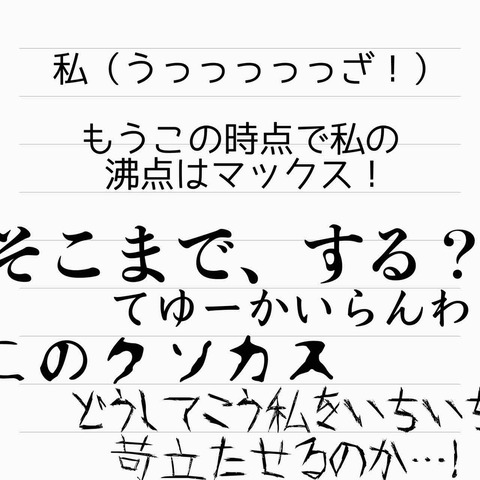 私（うっっっっっざ！）
もうこの時点で私の
沸点はマックス！
そこまで、する？
てゆーかいらんわ
このクソカス
どうしてこう私をいちいち
苛立たせるのか…！